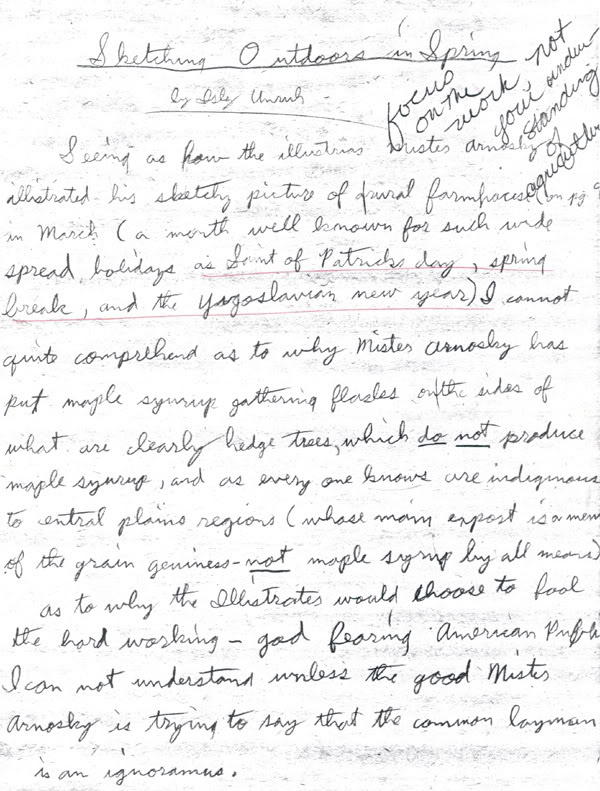 Sketching Outdoors in Spring
by Isly Unruh
focus
on the
work not
your under-
standing
of
agriculture
Seeing as how the illustrias Mister Arnosky
allistrated his sketchy picture of rural farmhouse (on pg 9
in March (a month well known for such wide
spread holidays as Saint of Patricks day, spring
break, and the Yogoslavian new year) I cannot
quite comprehend as to why Mister Arnosky has
put maple syurup gathering flasks on the sides of
what are clearly hedge trees, which do not produce
maple syurup, and as every one knows are indiginous
to central plains regions (whose main export is a mem
of the grain geniness - not maple syrup by all means)
as to why the Illistrates would choose to fool
the hard working - god fearing American Public
I can not understand unless the good Mister
Arnosky is trying to say that the common layman
is an ignoramus.